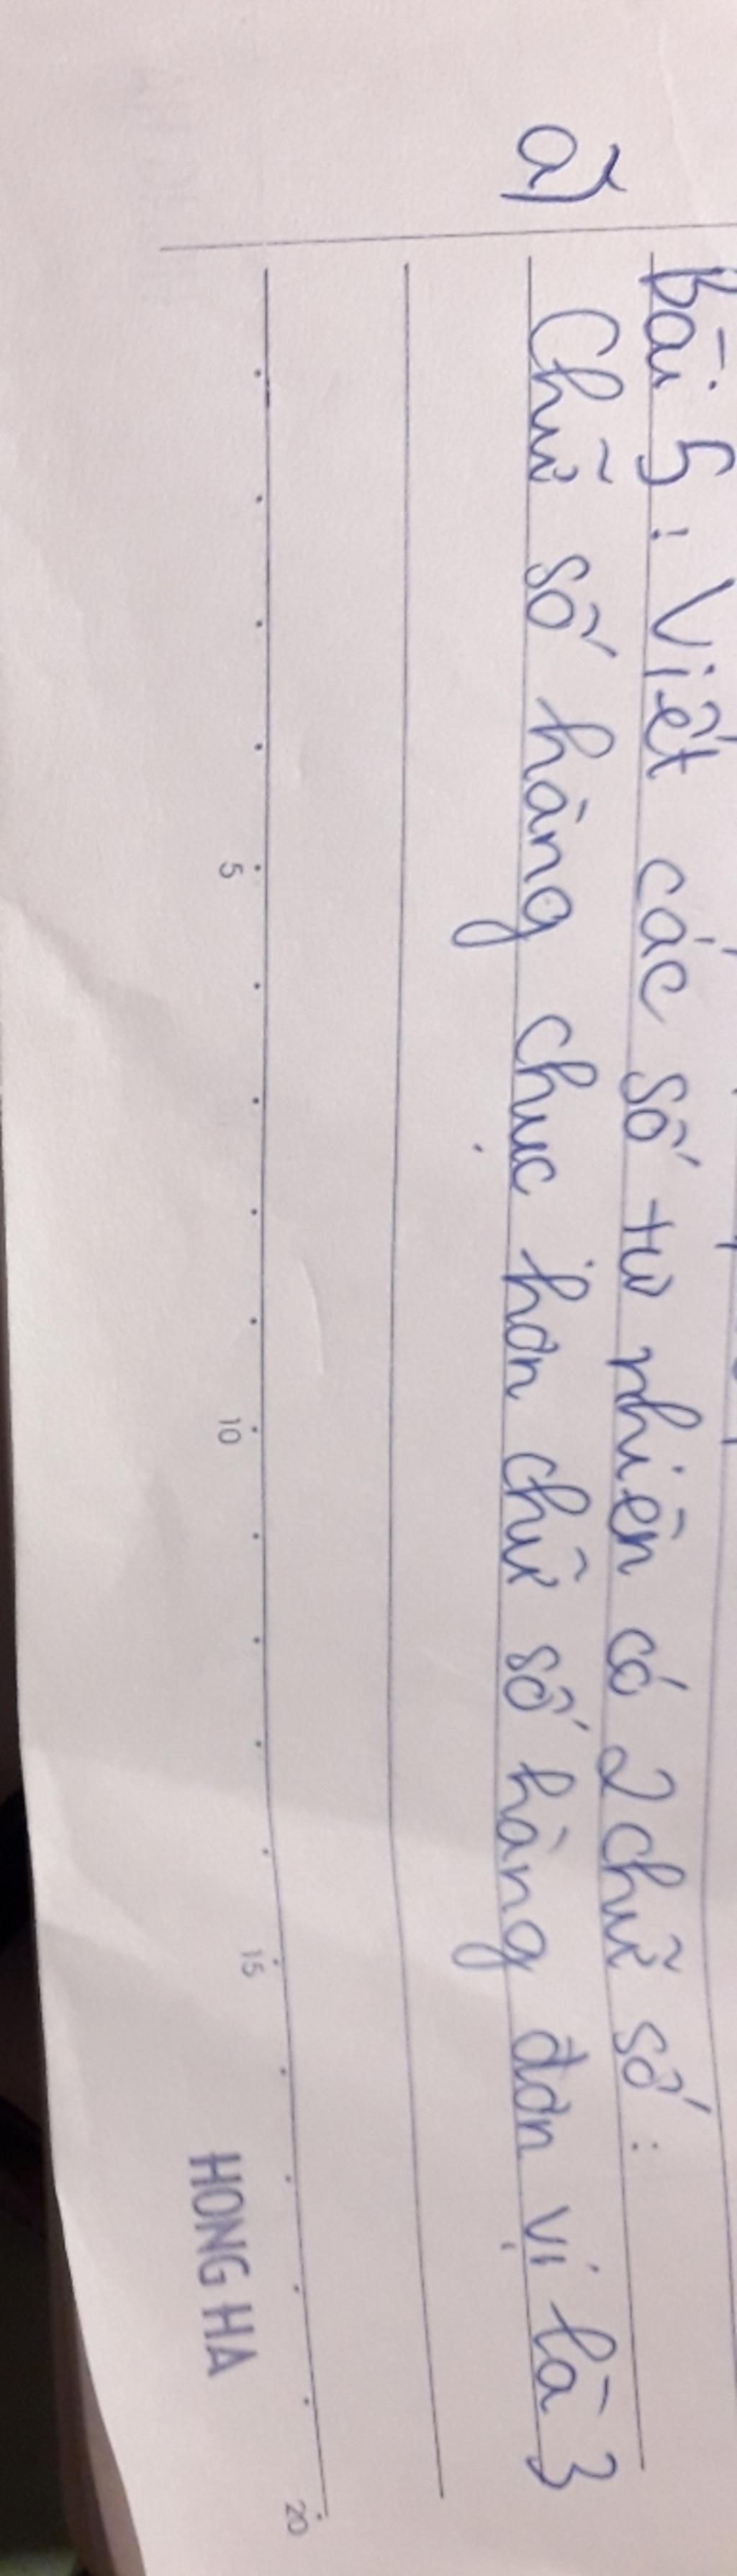 Bài 5: Viết các số tự nhiên có 2 chữ số:
a) Chữ số hàng chục hơn chữ số hàng đơn vị là 3
5 10 15 20
HONG HA